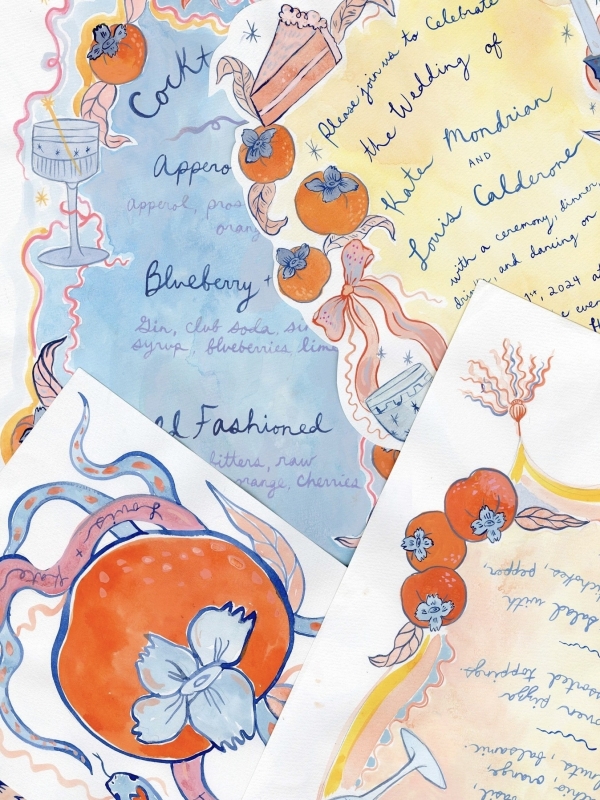 Cockt
Appero
Apperol, pros
orang
Blueberry +
Gin, club soda, si
syrup, blueberries, lime
ld Fashioned
bitters, raw
range, cherries
Please join us to Celebrate
the Wedding of
Kate Mondrian
AND
Louis Calderone
with a ceremony, dinner,
drinks, and dancing on
1st, 2024 at
Louis + Kate
basil,
orange,
balsamic.
oven pizza
assorted toppings
salad with
pepper,